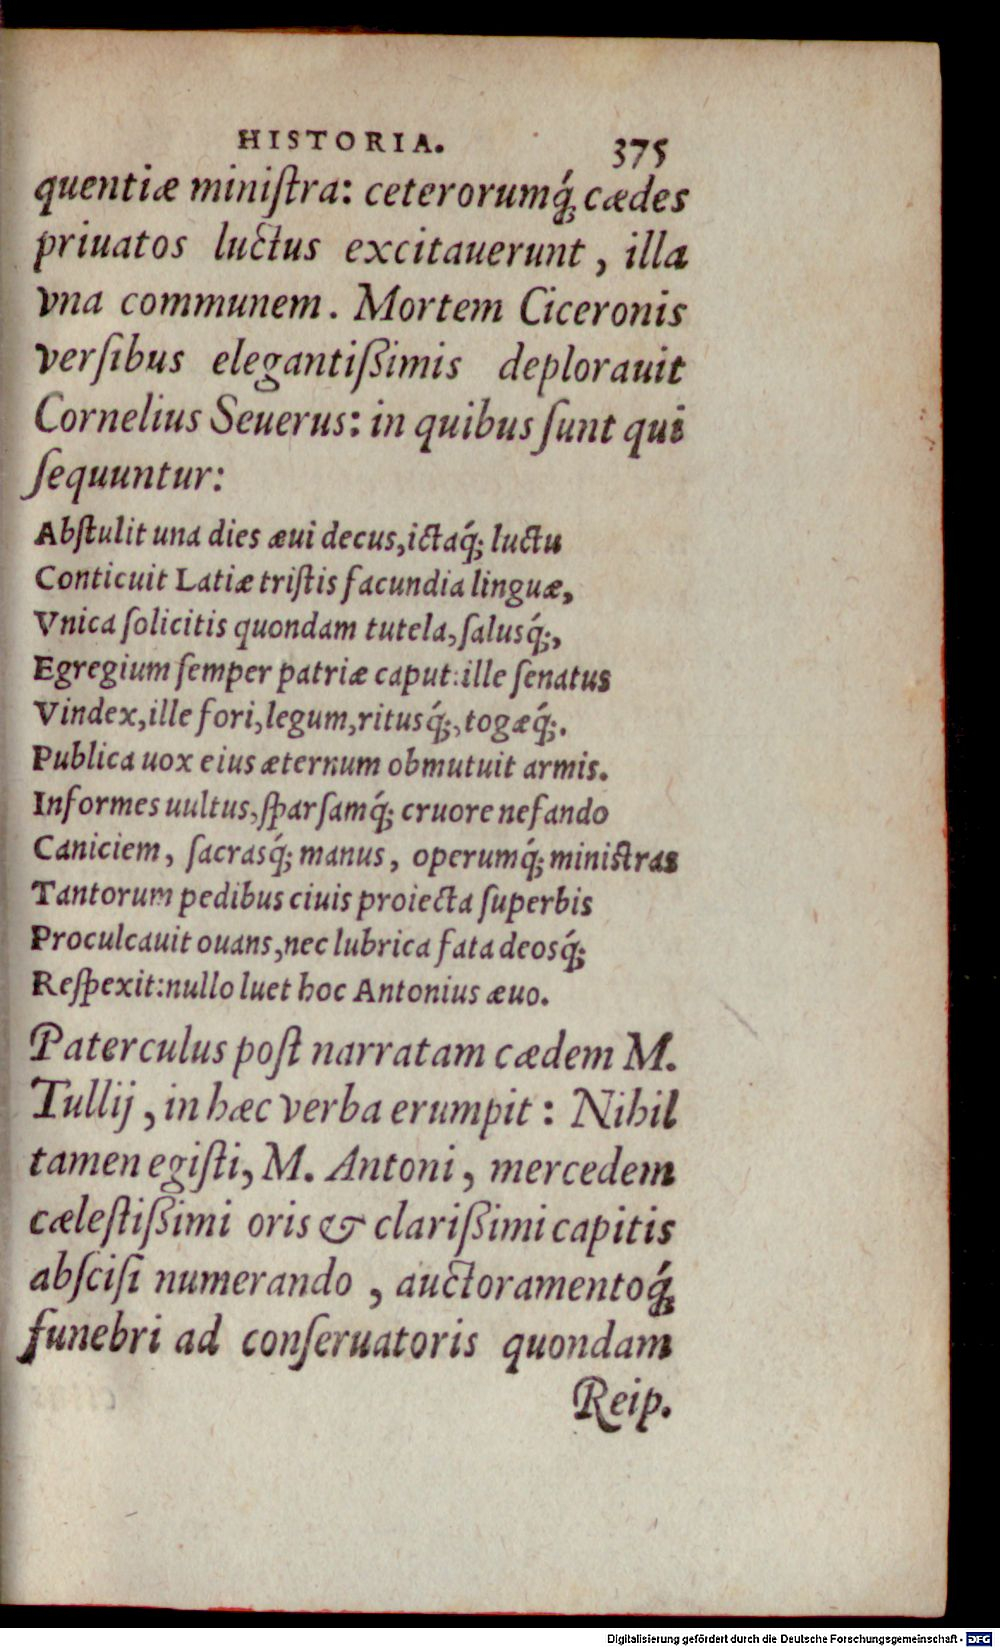 HISTORIA. 375
quentiæ miniſtra: ceterorumq́; cædes
priuatos luctus excitauerunt, illa
vna communem. Mortem Ciceronis
verſibus elegantißimis deplorauit
Cornelius Seuerus: in quibus ſunt qui
ſequuntur:
Abſtulit una dies æui decus, ictaq́; luctu
Conticuit Latiæ triſtis facundia linguæ,
Vnica ſolicitis quondam tutela, ſalusq́;,
Egregium ſemper patriæ caput: ille ſenatus
Vindex, ille fori, legum, ritusq́;, togæq́;.
Publica uox eius æternum obmutuit armis.
Informes uultus, ſparſamq́; cruore nefando
Caniciem, ſacrasq́; manus, operumq́; miniſtras
Tantorum pedibus ciuis proiecta ſuperbis
Proculcauit ouans, nec lubrica fata deosq́;
Reſpexit: nullo luet hoc Antonius æuo.
Paterculus poſt narratam cædem M.
Tullij, in hæc verba erumpit: Nihil
tamen egiſti, M. Antoni, mercedem
cæleſtißimi oris & clarißimi capitis
abſciſi numerando, auctoramentoq́;
funebri ad conſeruatoris quondam
Reip.
Digitalisierung gefördert durch die Deutsche Forschungsgemeinschaft - DFG